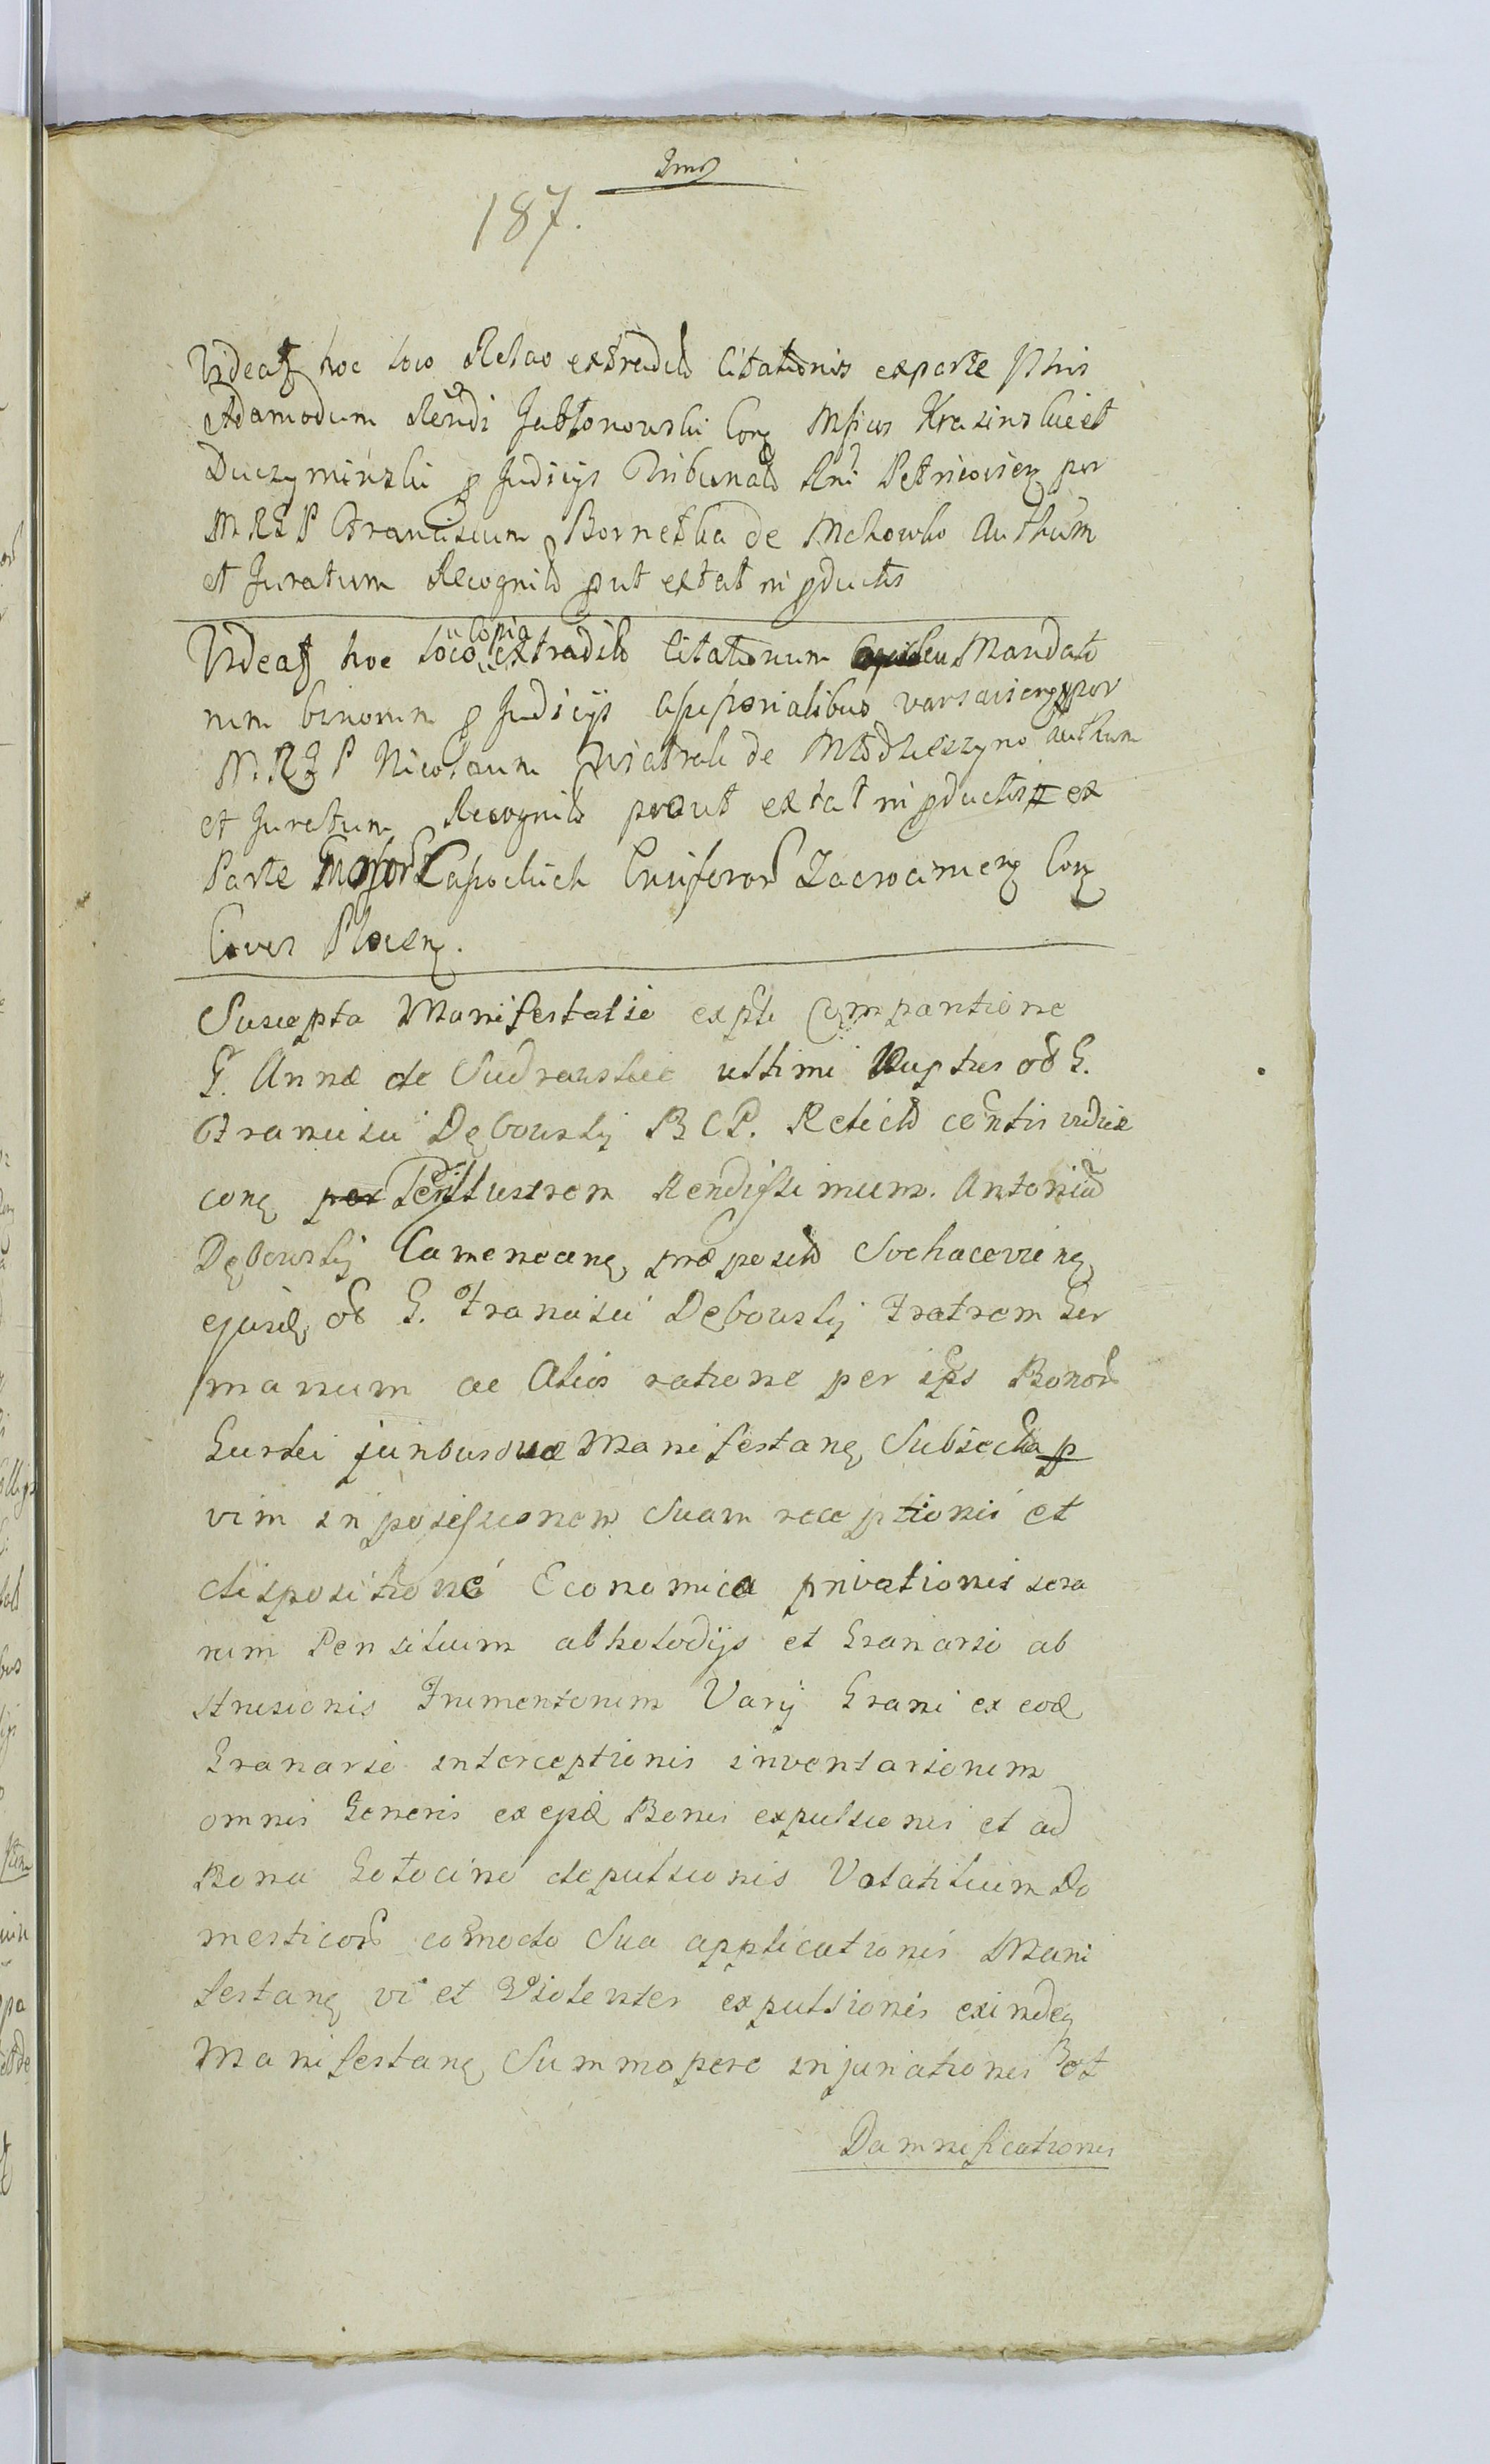 187.
Videat hoc loco Relao extradit Citationis exparte
Admodum Rendi Jabłonowski Con Msficos Krasinskiet
Duczyminski Judicijs Tribunal Rni Petricovien per
M R I P Franciscum Bornetka de Mchowko Authum
et Juratum Recognit put extat in pductis
Videat hoc loco copia extradit Citationum Mandato
rum binorum Judicijs Assessorialibus varsavien per
M. R I P Nicolaum Wiatrak de Młodzieszyno authum
et Juratum Recognit prout extat in pductis ex
Parte Lasockich Ensiferor Zacrocimen Con
Cives Plocen.
Suscepta Manifestatio expte Comparitione
G. Annæ de Sudrawskie ultimi Nuptus od G.
Francisci Dębowskij B C P. Relict centis viduæ
con per Perillustrem Rendissimum. Antoniu
Dębowskij Camenecen præposit Sochacevien
ejusd od G. Francisci Dębowskij Fratrem Ger
manum ac Alios ratione per ips Bonor
Gurski juribusque Manifestan Subjecta p
vim in possessionem Suam receptionis et
dispositione Economica privationis sera
rum Pensilium abhotodijs et Granario ab
strusionis Frumentorum Varij Grani ex eod
Granario interceptionis inventariorum
omnis Generis ex epid Bonis expulsionis et ad
Bona Gotocino depulsionis Volatilium Do
mesticor comodo Sua applicationis Mani
festan vi et Violenter expulsionis exinden
Manifestan Summopere injuriationis et
Damnificationis